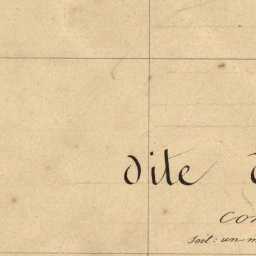 dite
con
soit : un m